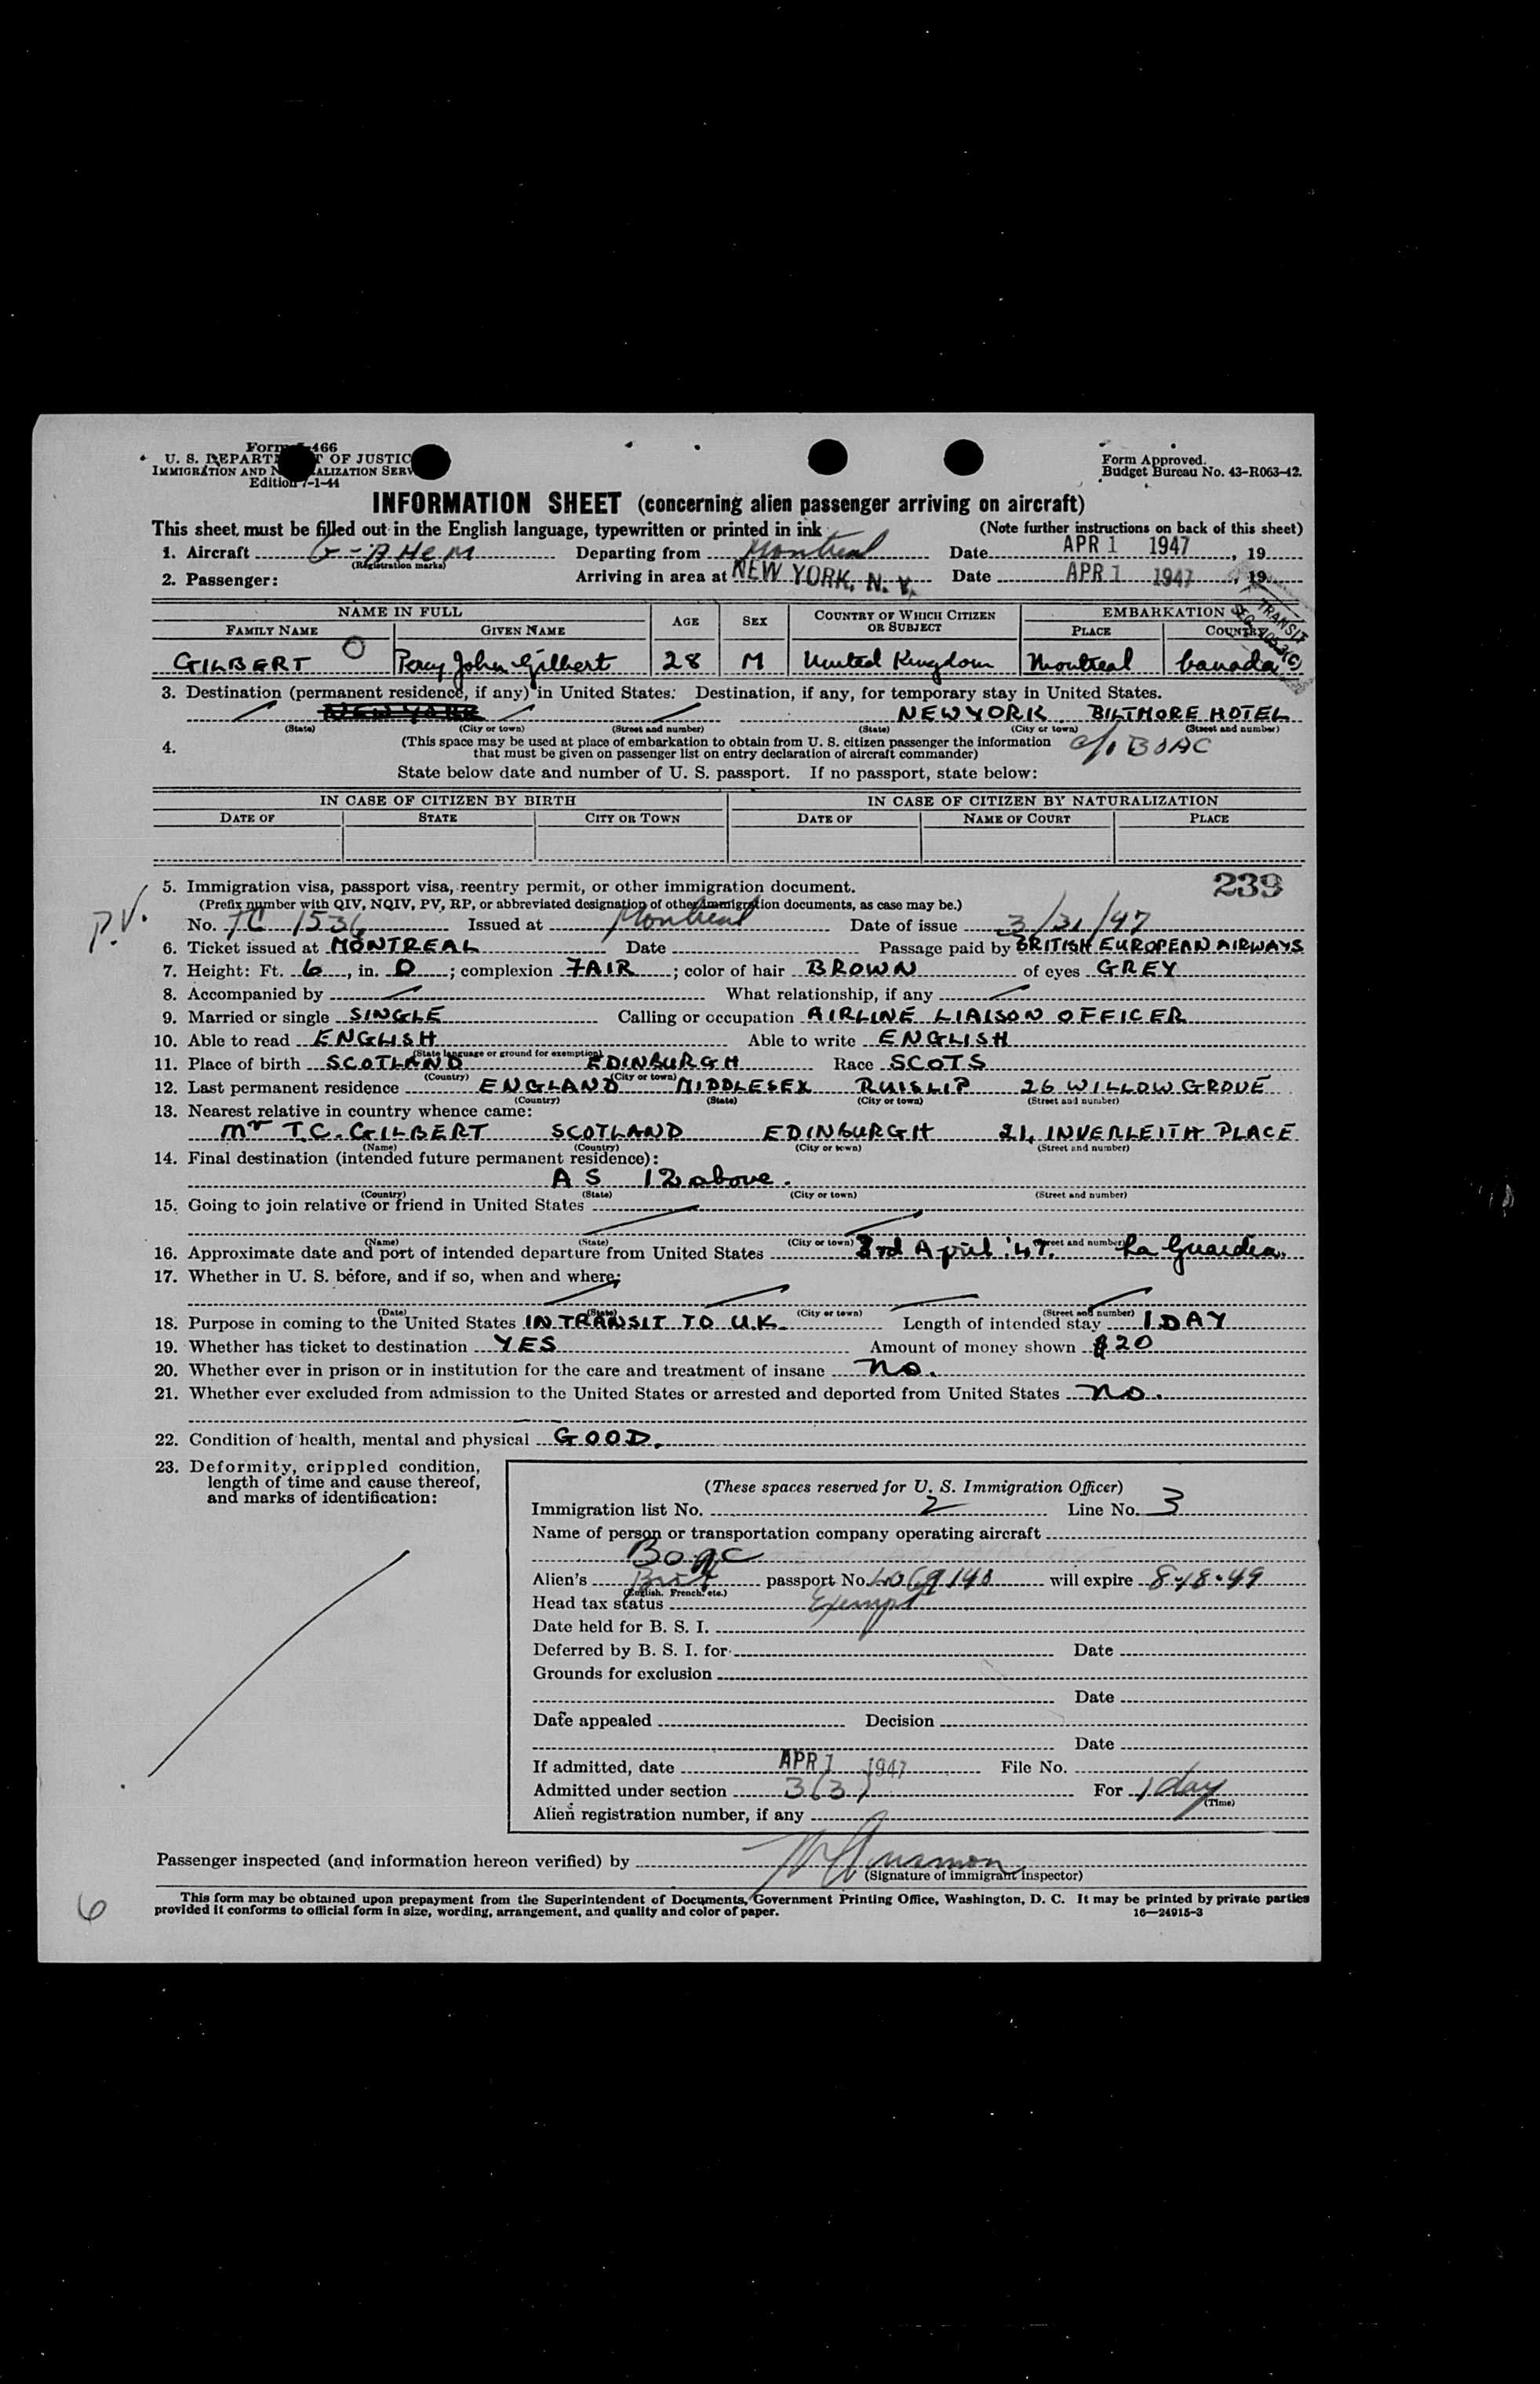 Form I-466
U. S. DEPARTMENT OF JUSTICE
IMMIGRATION AND NATURALIZATION SERV
Edition 7-1-44
Form Approved.
Budget Bureau No. 43-R063-42.
INFORMATION SHEET (concerning alien passenger arriving on aircraft)
This sheet must be filled out in the English language, typewritten or printed in ink
(Note further instructions on back of this sheet)
1. Aircraft G-AHEM Departing from Montreal Date APR 1 1947, 19
(Registration marks)
2. Passenger: Arriving in area at NEW YORK, N. Y. Date APR 1 1947, 19
TRANSIT
NAME IN FULL AGE SEX COUNTRY OF WHICH CITIZEN OR SUBJECT EMBARKATION
FAMILY NAME GIVEN NAME PLACE COUNTRY
GILBERT O Percy John Gilbert 28 M United Kingdom Montreal Canada
3. Destination (permanent residence, if any) in United States: Destination, if any, for temporary stay in United States.
NEW YORK NEW YORK BILTMORE HOTEL
(State) (City or town) (Street and number) (State) (City or town) (Street and number)
4. (This space may be used at place of embarkation to obtain from U. S. citizen passenger the information
that must be given on passenger list on entry declaration of aircraft commander) c/o BOAC
State below date and number of U. S. passport. If no passport, state below:
IN CASE OF CITIZEN BY BIRTH IN CASE OF CITIZEN BY NATURALIZATION
DATE OF STATE CITY OR TOWN DATE OF NAME OF COURT PLACE
5. Immigration visa, passport visa, reentry permit, or other immigration document. 239
(Prefix number with QIV, NQIV, PV, RP, or abbreviated designation of other immigration documents, as case may be.)
P.V. No. TC 1536 Issued at Montreal Date of issue 3/31/47
6. Ticket issued at MONTREAL Date Passage paid by BRITISH EUROPEAN AIRWAYS
7. Height: Ft. 6, in. 0; complexion FAIR; color of hair BROWN of eyes GREY
8. Accompanied by What relationship, if any
9. Married or single SINGLE Calling or occupation AIRLINE LIAISON OFFICER
10. Able to read ENGLISH Able to write ENGLISH
(State language or ground for exemption)
11. Place of birth SCOTLAND EDINBURGH Race SCOTS
(Country) (City or town)
12. Last permanent residence ENGLAND MIDDLESEX RUISLIP 26 WILLOW GROVE
(Country) (State) (City or town) (Street and number)
13. Nearest relative in country whence came:
Mr T.C. GILBERT SCOTLAND EDINBURGH 21, INVERLEITH PLACE
(Name) (Country) (City or town) (Street and number)
14. Final destination (intended future permanent residence):
AS 12 above.
(Country) (State) (City or town) (Street and number)
15. Going to join relative or friend in United States
(Name) (State) (City or town) (Street and number)
16. Approximate date and port of intended departure from United States 3rd April '47. La Guardia.
17. Whether in U. S. before, and if so, when and where:
(Date) (State) (City or town) (Street and number)
18. Purpose in coming to the United States IN TRANSIT TO U.K. Length of intended stay 1 DAY
19. Whether has ticket to destination YES Amount of money shown $20
20. Whether ever in prison or in institution for the care and treatment of insane No.
21. Whether ever excluded from admission to the United States or arrested and deported from United States No.
22. Condition of health, mental and physical GOOD.
23. Deformity, crippled condition,
length of time and cause thereof,
and marks of identification:
(These spaces reserved for U. S. Immigration Officer)
Immigration list No. 2 Line No. 3
Name of person or transportation company operating aircraft
Boac
Alien's Brit passport No. will expire 8-18-49
(English, French, etc.)
Head tax status Exempt
Date held for B. S. I.
Deferred by B. S. I. for Date
Grounds for exclusion
Date
Date appealed Decision
Date
If admitted, date APR 1 1947 File No.
Admitted under section 3(3) For 1 day
(Time)
Alien registration number, if any
Passenger inspected (and information hereon verified) by
(Signature of immigrant inspector)
6
This form may be obtained upon prepayment from the Superintendent of Documents, Government Printing Office, Washington, D. C. It may be printed by private parties
provided it conforms to official form in size, wording, arrangement, and quality and color of paper. 16—24915-3